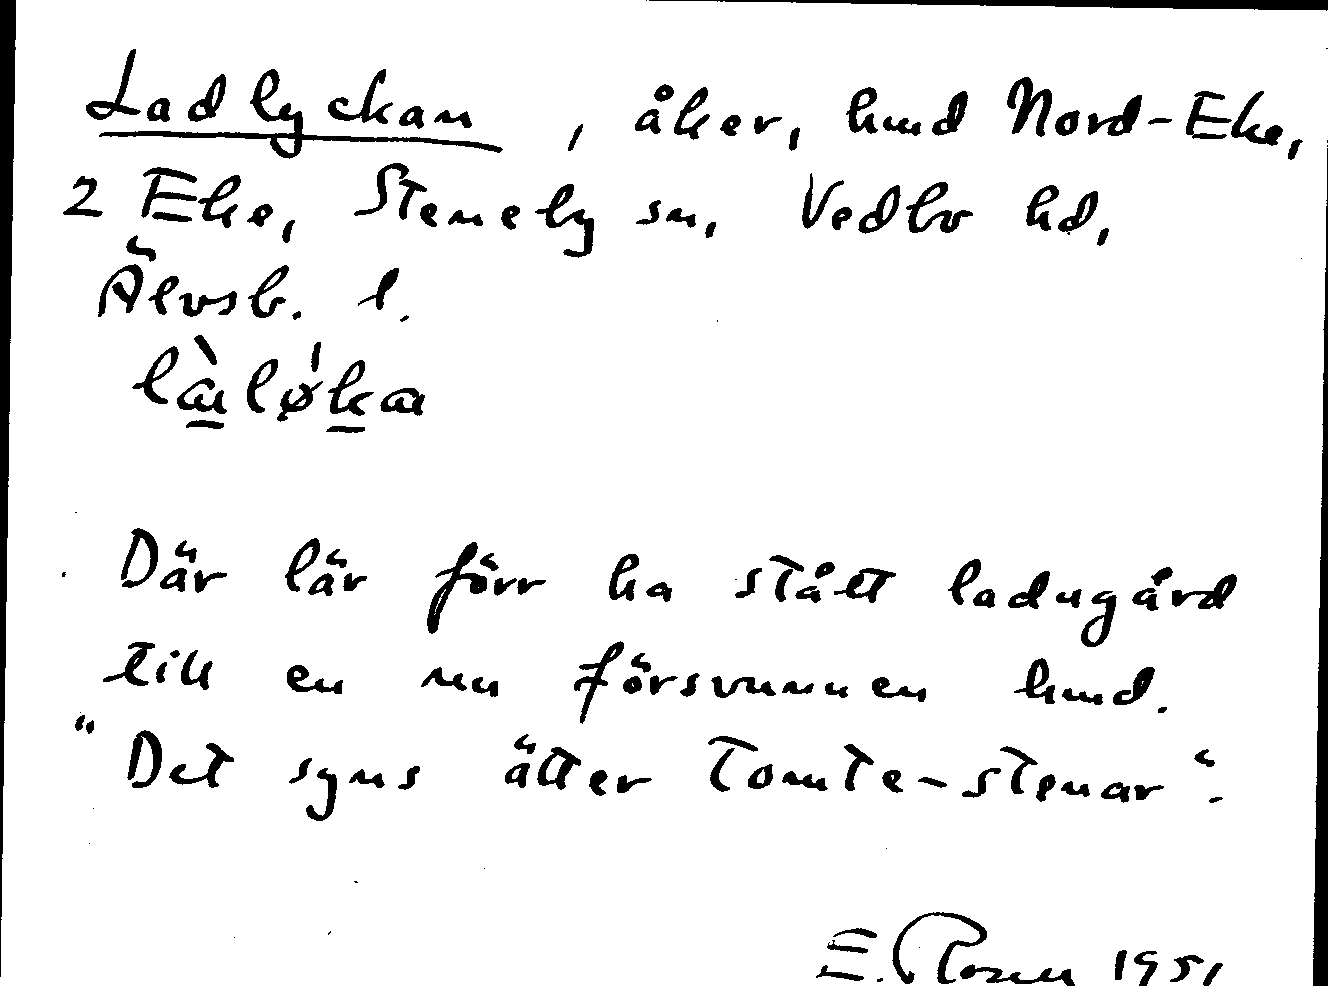 Ladlyckan, åker, hmd Nord-Eke,
2 Eke, Steneby sn, Vedbo hd,
Älvsb. l.
Där lär förr ha stått ladugård
till en nu försvunnen hmd.
"Det syns ätter Tomte-stenar".
E. Rosen 1951